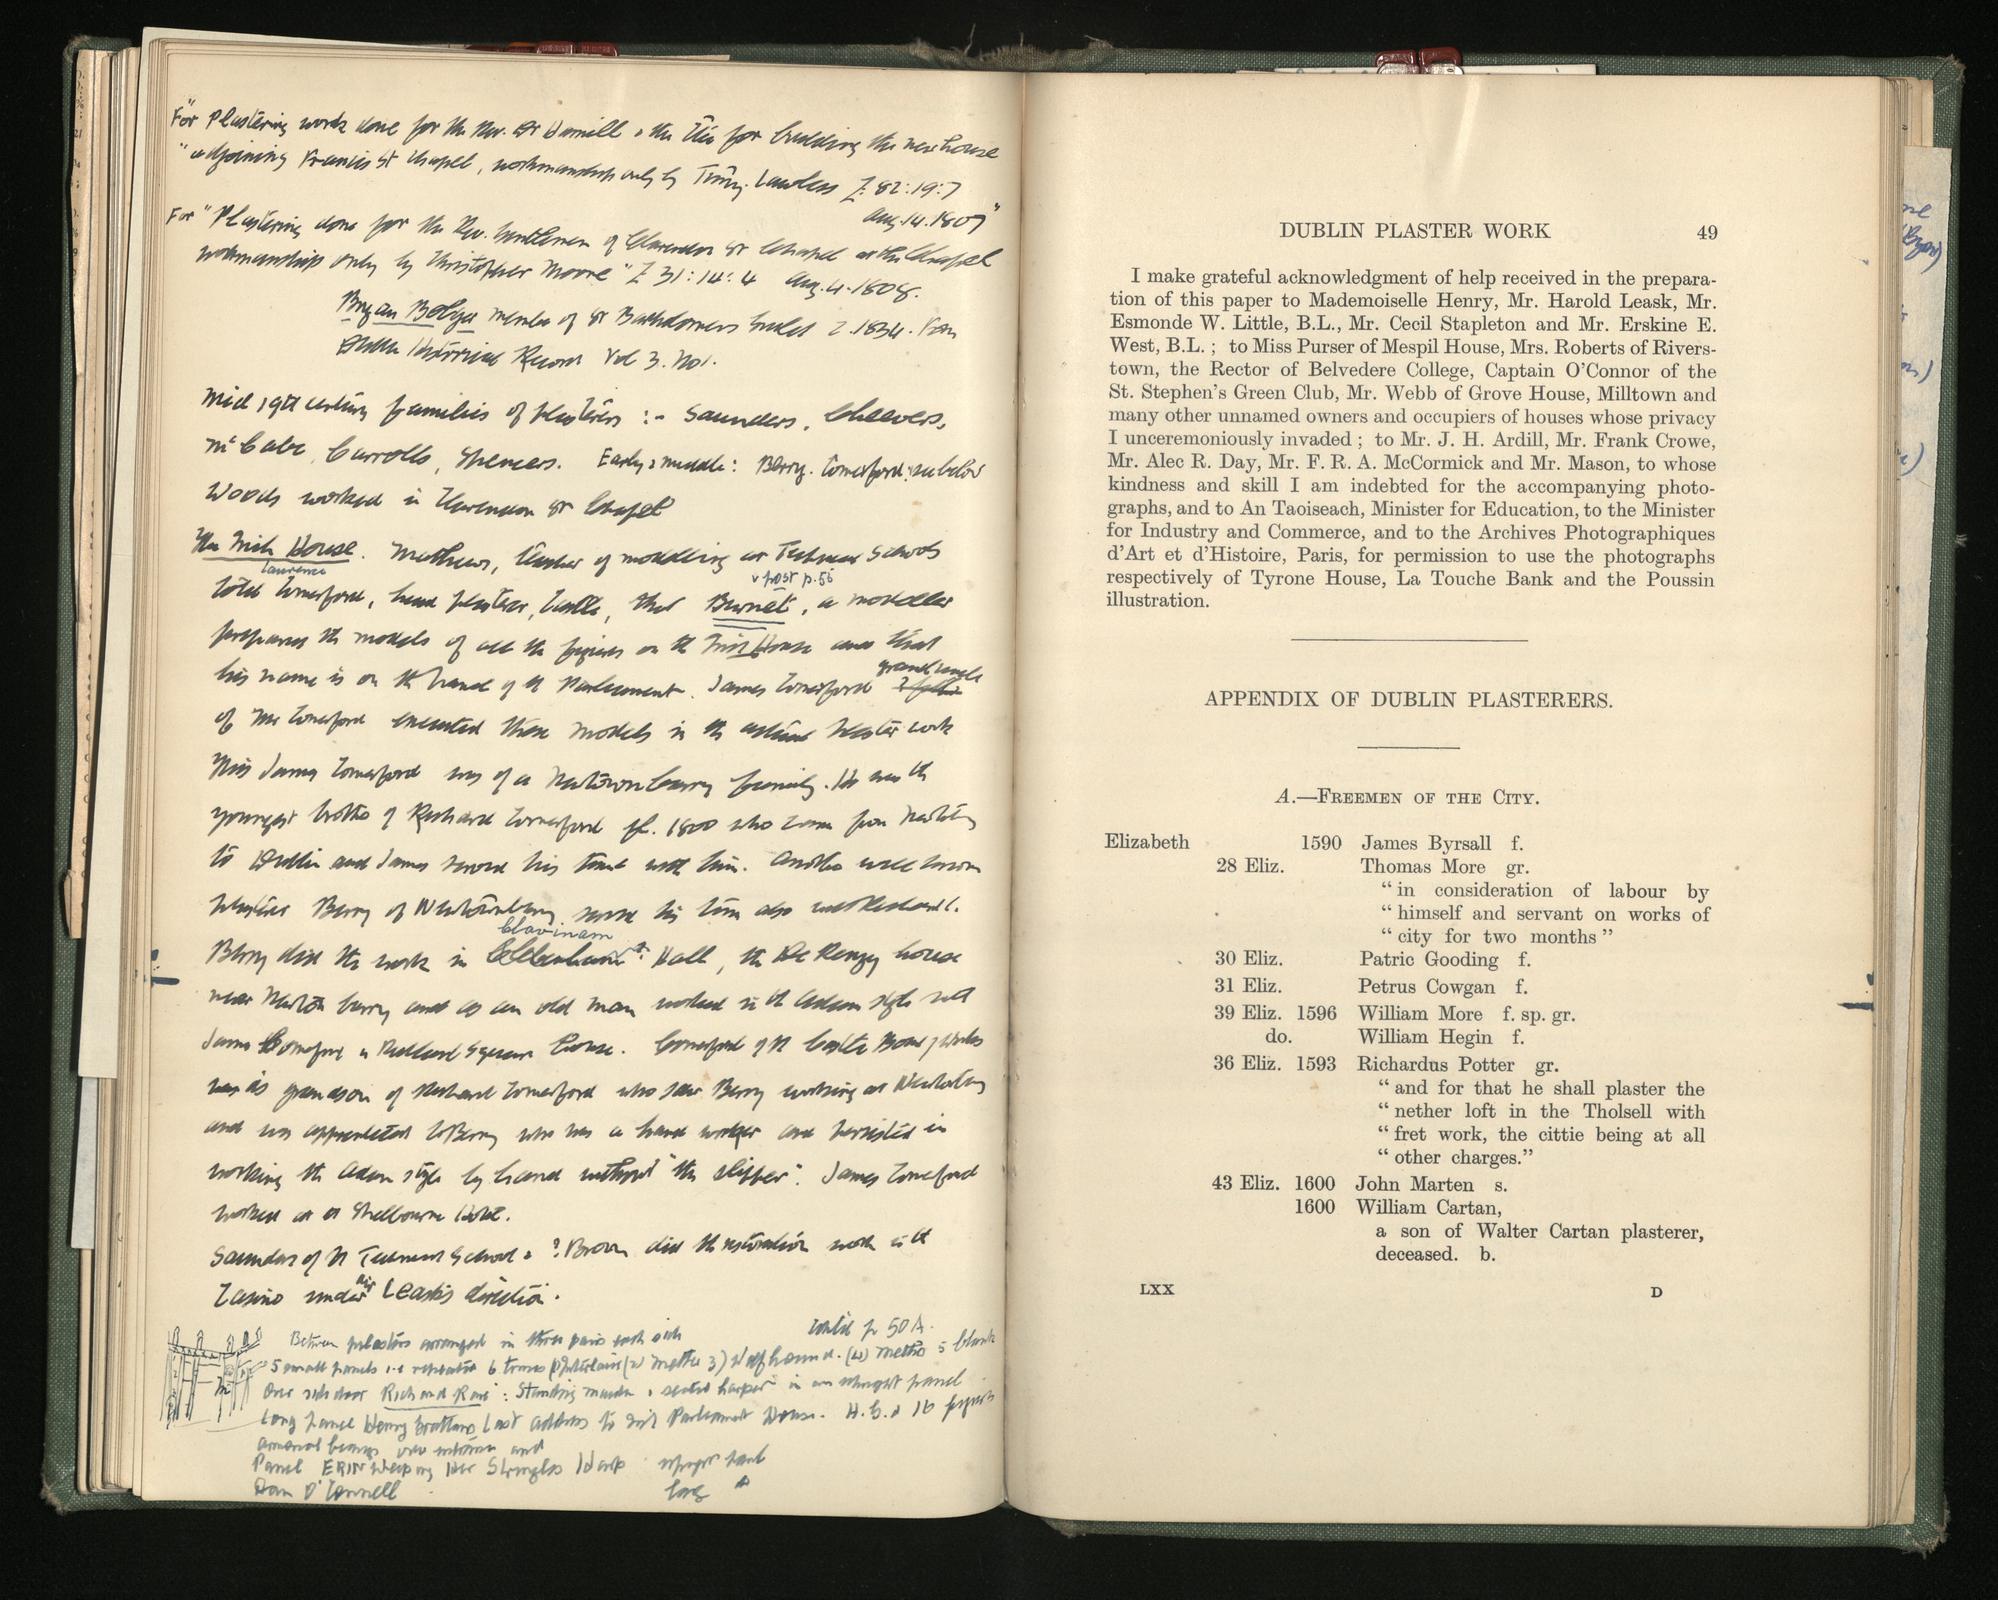 "For Plastering work done for the Rev. Dr Hamill & the for building the new house
"adjoining Francis St Chapel, workmanship only by Timy. Lawless £ 82:19:7
Aug.14.1807"
For "Plastering done for the Rev. Gentlemen of Clarendon St Chapel at the Chapel
workmanship only by Christopher Moore" £ 31:14:4 Aug.4.1808.
Bryan Bolger member of St Bartholomews Guild
Dublin Historical Record Vol 3. No1.
Mid 19th century families of plasterers :- Saunders, Cheevers,
McCabe, Carrolls, Spencers. Early & middle: Berry. Comerford: see below
Woods worked in Clarendon St Chapel
The Irish House. Mathews, teacher of modelling at Technical Schools
Laurence v post p.56
told Comerford, head plasterer, Castle, that Burnet, a modeller
prepared the models of all the figures on the Irish House and that
his name is on the panel of the Parliament. James Comerford grand uncle
of Mr Comerford executed these models in the actual plaster work
This James Comerford was of a Newtownbarry family. He was the
youngest brother of Richard Comerford fl. 1800 who came from
to Dublin and James served his time with him. Another well known
plasterer Berry of Newtownbarry served his time also with Richard C.
Clavinam
Berry did the work in Hall, the De Renzy house
near Newtonbarry and as an old man worked in the Adam style with
James Comerford in Rutland Square house. Comerford of the Castle Board of Works
was grandson of Richard Comerford who saw Berry working at
and was apprenticed to Berry who was a hand worker and persisted in
working the Adam style by hand without "the slipper". James Comerford
worked at the Shelbourne Hotel.
Saunders of the Technical School & ? Brown did the restoration work in the
Casino under Mr Leask's direction.
Between pilasters arranged in three pairs each side contd p 50A.
5 small panels i.e repeated 6 times wolfhound. 5 blank
Over side door Richard Rowe: Standing & seated harper in an upright panel
Long panel Henry Grattans Last address to Irish Parliament House. H.G. & 16 figures
armorial bearings over entrance and
Panel ERIN Weeping Her Stringless Harp upright panel
Dan O'Connell long
DUBLIN PLASTER WORK 49
I make grateful acknowledgment of help received in the prepara-
tion of this paper to Mademoiselle Henry, Mr. Harold Leask, Mr.
Esmonde W. Little, B.L., Mr. Cecil Stapleton and Mr. Erskine E.
West, B.L. ; to Miss Purser of Mespil House, Mrs. Roberts of Rivers-
town, the Rector of Belvedere College, Captain O'Connor of the
St. Stephen's Green Club, Mr. Webb of Grove House, Milltown and
many other unnamed owners and occupiers of houses whose privacy
I unceremoniously invaded ; to Mr. J. H. Ardill, Mr. Frank Crowe,
Mr. Alec R. Day, Mr. F. R. A. McCormick and Mr. Mason, to whose
kindness and skill I am indebted for the accompanying photo-
graphs, and to An Taoiseach, Minister for Education, to the Minister
for Industry and Commerce, and to the Archives Photographiques
d'Art et d'Histoire, Paris, for permission to use the photographs
respectively of Tyrone House, La Touche Bank and the Poussin
illustration.
APPENDIX OF DUBLIN PLASTERERS.
A.—FREEMEN OF THE CITY.
Elizabeth 1590 James Byrsall f.
28 Eliz. Thomas More gr.
"in consideration of labour by
"himself and servant on works of
"city for two months"
30 Eliz. Patric Gooding f.
31 Eliz. Petrus Cowgan f.
39 Eliz. 1596 William More f. sp. gr.
do. William Hegin f.
36 Eliz. 1593 Richardus Potter gr.
"and for that he shall plaster the
"nether loft in the Tholsell with
"fret work, the cittie being at all
"other charges."
43 Eliz. 1600 John Marten s.
1600 William Cartan,
a son of Walter Cartan plasterer,
deceased. b.
LXX D